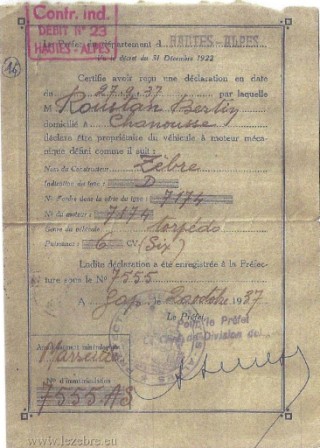 Contr. ind.
DEBIT N° 23
HAUTES - ALPES
Le Préfet du département d HAUTES-ALPES
Vu le décret du 31 Décembre 1922
14
Certifie avoir reçu une déclaration en date
du 27.9.37 par laquelle
M Roustan Bertin
domicilié à Chanousse
déclare être propriétaire du véhicule à moteur méca-
nique défini comme il suit :
Nom du Constructeur : Zèbre
Indication du type : D
N° d'ordre dans la série du type : 7174
N° du moteur : 7174
Genre du véhicule : torpédo
Puissance : 6 CV (Six)
Ladite déclaration a été enregistrée à la Préfec-
ture sous le N° 7555
A Gap, le 2 octobre 1937
Le Préfet
Pour le Préfet
Le Chef de Division del.
Arrondissement minéralogique
Marseille
N° d'immatriculation
7555 AS
© www.lezebre.eu